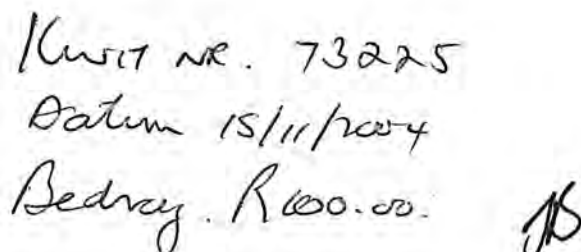 Kwit NR. 73225
Datum 15/11/2004
Bedrag. R600.00.